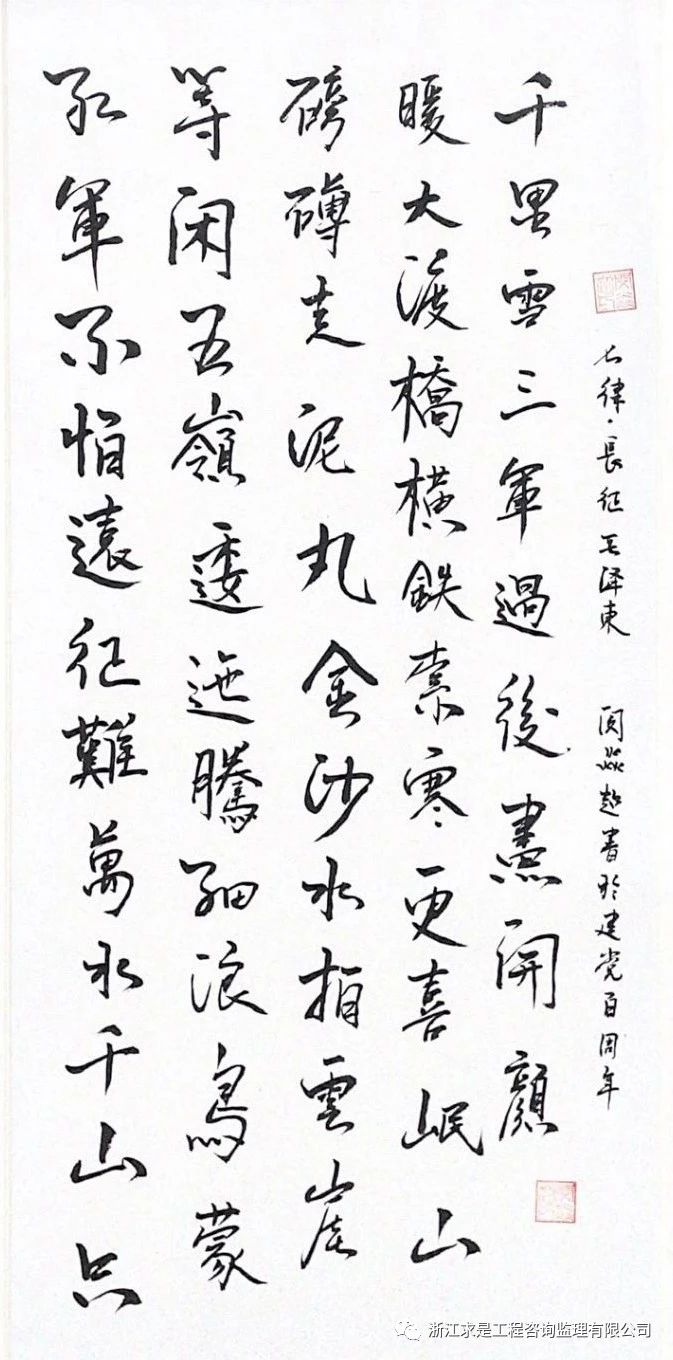 紅軍不怕遠征難萬水千山只
等闲五嶺逶迤騰細浪烏蒙
磅礴走泥丸金沙水拍雲崖
暖大渡橋横鉄索寒更喜岷山
千里雪三軍過後盡開顔
七律·長征 毛泽東 書於建党百周年
浙江求是工程咨询监理有限公司